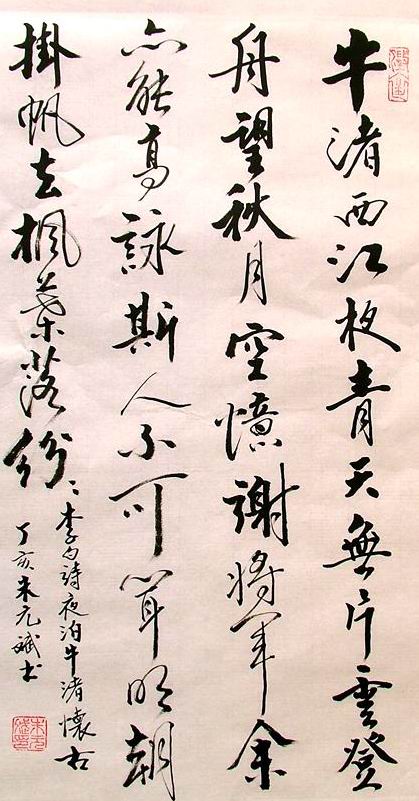 牛渚西江夜青天無片雲登
舟望秋月空憶謝將軍余
亦能高詠斯人不可聞明朝
掛帆去楓葉落紛〻
李白詩夜泊牛渚懷古
丁亥朱元斌书